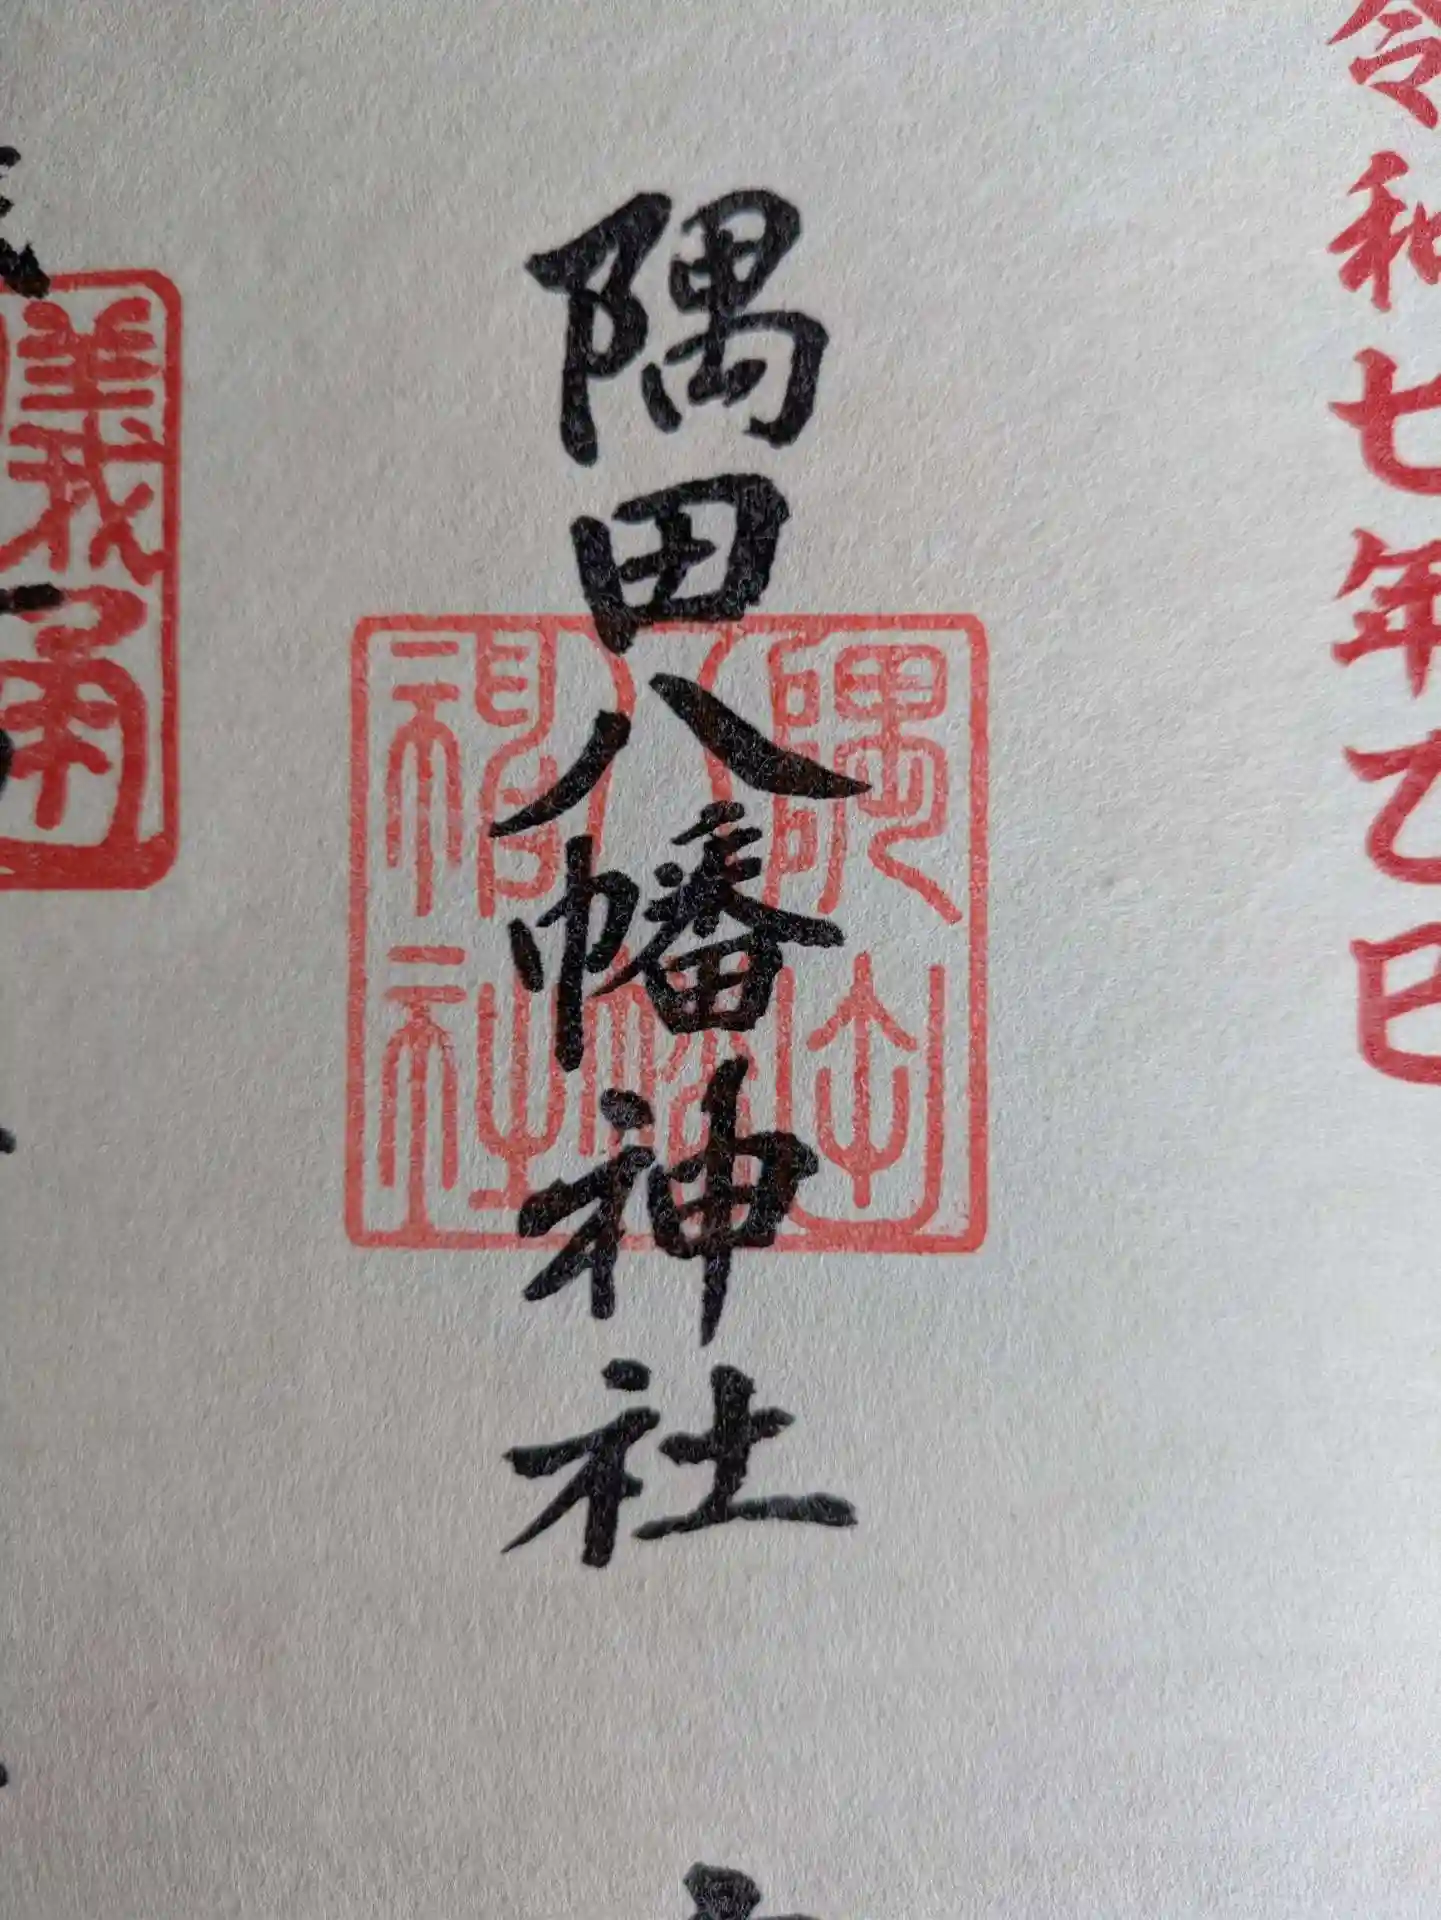 令和七年乙巳
隅田八幡神社
隅田
八幡
神社
義